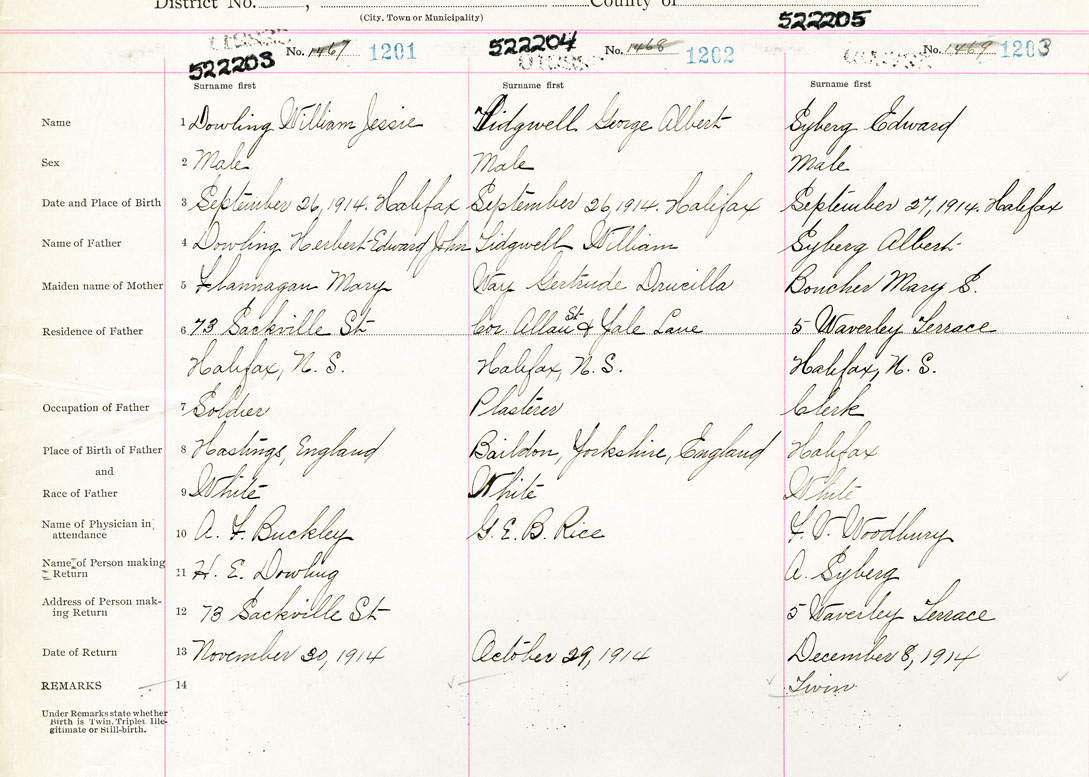 District No. , County of
(City, Town or Municipality)
522203 No. 1467 1201 522204 No. 1468 1202 522205 No. 1469 1203
Surname first Surname first Surname first
Name 1 Dowling William Jessie Tidgwell George Albert Syberg Edward
Sex 2 Male Male Male
Date and Place of Birth 3 September 26, 1914. Halifax September 26, 1914. Halifax September 27, 1914. Halifax
Name of Father 4 Dowling Herbert Edward John Tidgwell William Syberg Albert
Maiden name of Mother 5 Flannagan Mary Way Gertrude Drucilla Boucher Mary S.
Residence of Father 6 73 Sackville St Cor. Allan St & Yale Lane 5 Waverley Terrace
Halifax, N. S. Halifax, N. S. Halifax, N. S.
Occupation of Father 7 Soldier Plasterer Clerk
Place of Birth of Father 8 Hastings, England Baildon, Yorkshire, England Halifax
and
Race of Father 9 White White White
Name of Physician in
attendance 10 A. F. Buckley G. E. B. Rice F. V. Woodbury
Name of Person making
Return 11 H. E. Dowling A. Syberg
Address of Person mak-
ing Return 12 73 Sackville St 5 Waverley Terrace
Date of Return 13 November 30, 1914 October 29, 1914 December 8, 1914
REMARKS 14 Twin
Under Remarks state whether
Birth is Twin, Triplet, Ille-
gitimate or Still-birth.